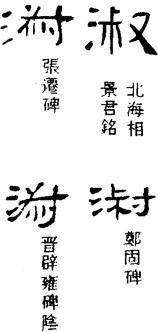 淑
北海相
景君銘
張遷碑
鄭固碑
晋辟雍碑陰